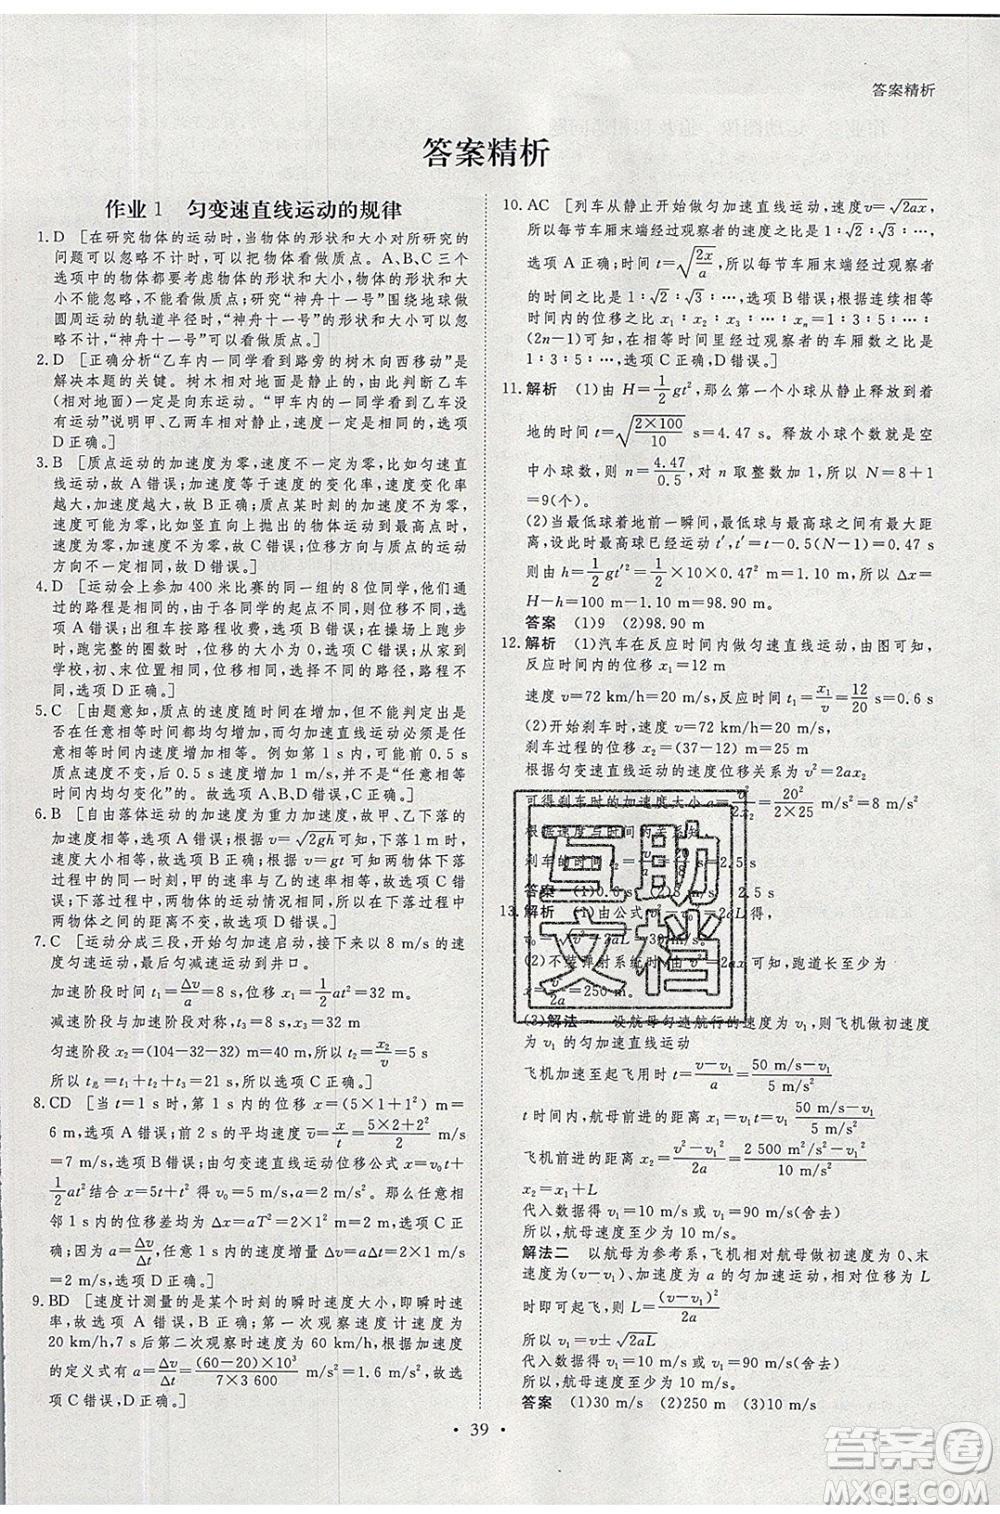 答案精析
答案精析
作业1 匀变速直线运动的规律
1. D [在研究物体的运动时,当物体的形状和大小对所研究的
问题可以忽略不计时,可以把物体看做质点。A、B、C三个
选项中的物体都要考虑物体的形状和大小,物体的形状和大
小不能忽略,不能看做质点;研究“神舟十一号”围绕地球做
圆周运动的轨道半径时,“神舟十一号”的形状和大小可忽略
不计,可以看做质点。]
2. D [正确分析“乙车内一同学看到路旁的树木向西移动”是
解决本题的关键。树木相对地面是静止的,由此判断乙车
(相对地面)一定是向东运动。“甲车内一同学看到乙车没有
运动”说明甲、乙两车相对静止,速度一定是相同的,选项
D正确。]
3. B [质点运动的加速度为零,速度不一定为零,比如匀速直
线运动,故A错误;加速度等于速度的变化率,速度变化率
越大,加速度越大,故B正确;质点某时刻的加速度不为零,
速度可以为零,比如竖直向上抛出的物体运动到最高点时,
速度为零,加速度不为零,故C错误;位移方向与质点的运动
方向不一定相同,故D错误。]
4. D [运动会上参加400米比赛的同一组的8位同学,他们通
过的路程是相同的,各位同学的起点不同,终点相同,故位移
不同,选项A错误;出租车按路程收费,故B错误;在操场上跑步
时,跑完整的圈数时,位移的大小为零,选项C错误;从家到
学校,初、末位置相同,可以选择不同的路径,路程不
同,故选项D正确。]
5. C [由题意知,质点的速度随时间在增加,但不能判定出是
否在相等时间均匀增加,而匀加速直线运动必须是在任
意相等的时间内速度均匀增加。例如第1 s内,可能前0.5 s
质点速度不变,后0.5 s速度增加了1 m/s,不是“任意相等
时间内均匀变化”,故C正确。]
6. B [自由落体运动的加速度为重力加速度,甲、乙下落1 m时
速度相同,故A错误;根据v=√2gh可知,下落1 m时的速度
相等,故B正确;根据v=gt可知两物体下落
过程中的同一时刻,甲、乙的运动情况相同,故C错误;
下落过程中,甲、乙两物体在同一时刻下落的高度相同,则
两物体之间的距离不变,故D错误。]
7. C [运动分成三段,开始匀加速启动,接下来以8 m/s的速
度匀速运动,最后匀减速运动到井口。
加速阶段时间t₁=Δv/a=8 s,位移x₁=1/2at²=32 m。
减速阶段与加速阶段对称,t₃=8 s,x₃=32 m
匀速阶段x₂=(104-32-32) m=40 m,t₂=x₂/v=5 s
所以t总=t₁+t₂+t₃=21 s,故C正确。]
8. CD [当t=1 s时,第1 s内的位移x=(5×1+1²) m=
6 m,选项A错误;前2 s的平均速度v̄=x/t=(5×2+2²)/2 m/s
=7 m/s,选项B错误;由匀变速直线运动位移公式x=v₀t+
1/2at²结合x=5t+t²得v₀=5 m/s,a=2 m/s²,则任意相
邻1 s内的位移差均为Δx=aT²=2 m,选项C正确;由a
=Δv/Δt得Δv/Δt=2 m/s²,D正确。]
9. BD [速度计测量的是某个时刻的瞬时速度大小,即瞬时速
率,故A错误,B正确;第一次观察时瞬时速度为
20 km/h,7 s后第二次观察时为60 km/h,根据加速度
的定义式有a=Δv/Δt=(60-20)×10³/(7×3 600) m/s²≈1.6 m/s²,
故C错误,D正确。]
10. AC [列车从静止开始做匀加速直线运动,速度v=√2ax,
所以每节车厢末端经过观察者的速度之比是1∶√2∶√3∶…,
选项A正确;时间t=√(2x/a),所以每节车厢末端经过观察者
的时间之比是1∶√2∶√3∶…,选项B错误;根据连续相等
时间内位移之比x₁∶x₂∶x₃∶…∶xₙ=1∶3∶5∶…∶
(2n-1)可知,在相等时间里经过观察者的车厢数之比是
1∶3∶5∶…,选项C正确,D错误。]
11. 解析 (1)由H=1/2gt²,那么第一个小球从静止释放到着
地的时间t=√(2×100/10) s=4.47 s。释放小球个数就是空
中小球数,则n=4.47/0.5=8.9,取整数加1,所以N=8+1
=9(个)。
(2)当最低球着地前一瞬间,最低球与最高球有最大距
离,设此时最高球已经运动t′,t′=t-0.5(N-1)=0.47 s,
则由h=1/2gt′²=1/2×10×0.47² m=1.10 m,所以Δx=
H-h=100 m-1.10 m=98.90 m。
答案 (1)9 (2)98.90 m
12. 解析 (1)汽车在反应时间内做匀速直线运动,由图可知,
反应时间内的位移x₁=12 m
速度v=72 km/h=20 m/s,反应时间t₁=x₁/v=12/20 s=0.6 s
(2)开始刹车时,速度v=72 km/h=20 m/s
刹车过程的位移x₂=(37-12) m=25 m
根据匀变速直线运动的速度与位移的关系知v²=2ax₂
可得刹车时的加速度大小a=v²/2x₂=20²/(2×25) m/s²=8 m/s²
根据速度与时间的关系知
刹车的时间t₂=v/a=20/8 s=2.5 s
答案 (1)0.6 s (2)8 m/s² 2.5 s
13. 解析 (1)由公式v²-v₀²=2aL得,
v₀=√(v²-2aL)=30 m/s。
(2)不装弹射系统时,由v²=2ax可知,跑道长至少为
x=v²/2a=250 m。
(3)解法一 设航母匀速航行的速度为v₁,则飞机做初速度
为v₁的匀加速直线运动
飞机加速至起飞用时t=(v-v₁)/a=(50 m/s-v₁)/(5 m/s²)
t时间内,航母前进的距离x₁=v₁t=v₁(50 m/s-v₁)/(5 m/s²)
飞机前进的距离x₂=(v²-v₁²)/2a=(2 500 m²/s²-v₁²)/(10 m/s²)
x₂=x₁+L
代入数据得v₁=10 m/s或v₁=90 m/s(舍去)
所以,航母速度至少为10 m/s。
解法二 以航母为参考系,飞机相对航母做初速度为0、末
速度为v-v₁、加速度为a的匀加速运动,相对位移达到L
时即可起飞,则有L=(v-v₁)²/2a
所以v₁=v±√2aL
代入数据得v₁=10 m/s或v₁=90 m/s(舍去)
所以,航母速度至少为10 m/s。
答案 (1)30 m/s (2)250 m (3)10 m/s
互助
文档
· 39 ·
答案圈
MXQE.COM